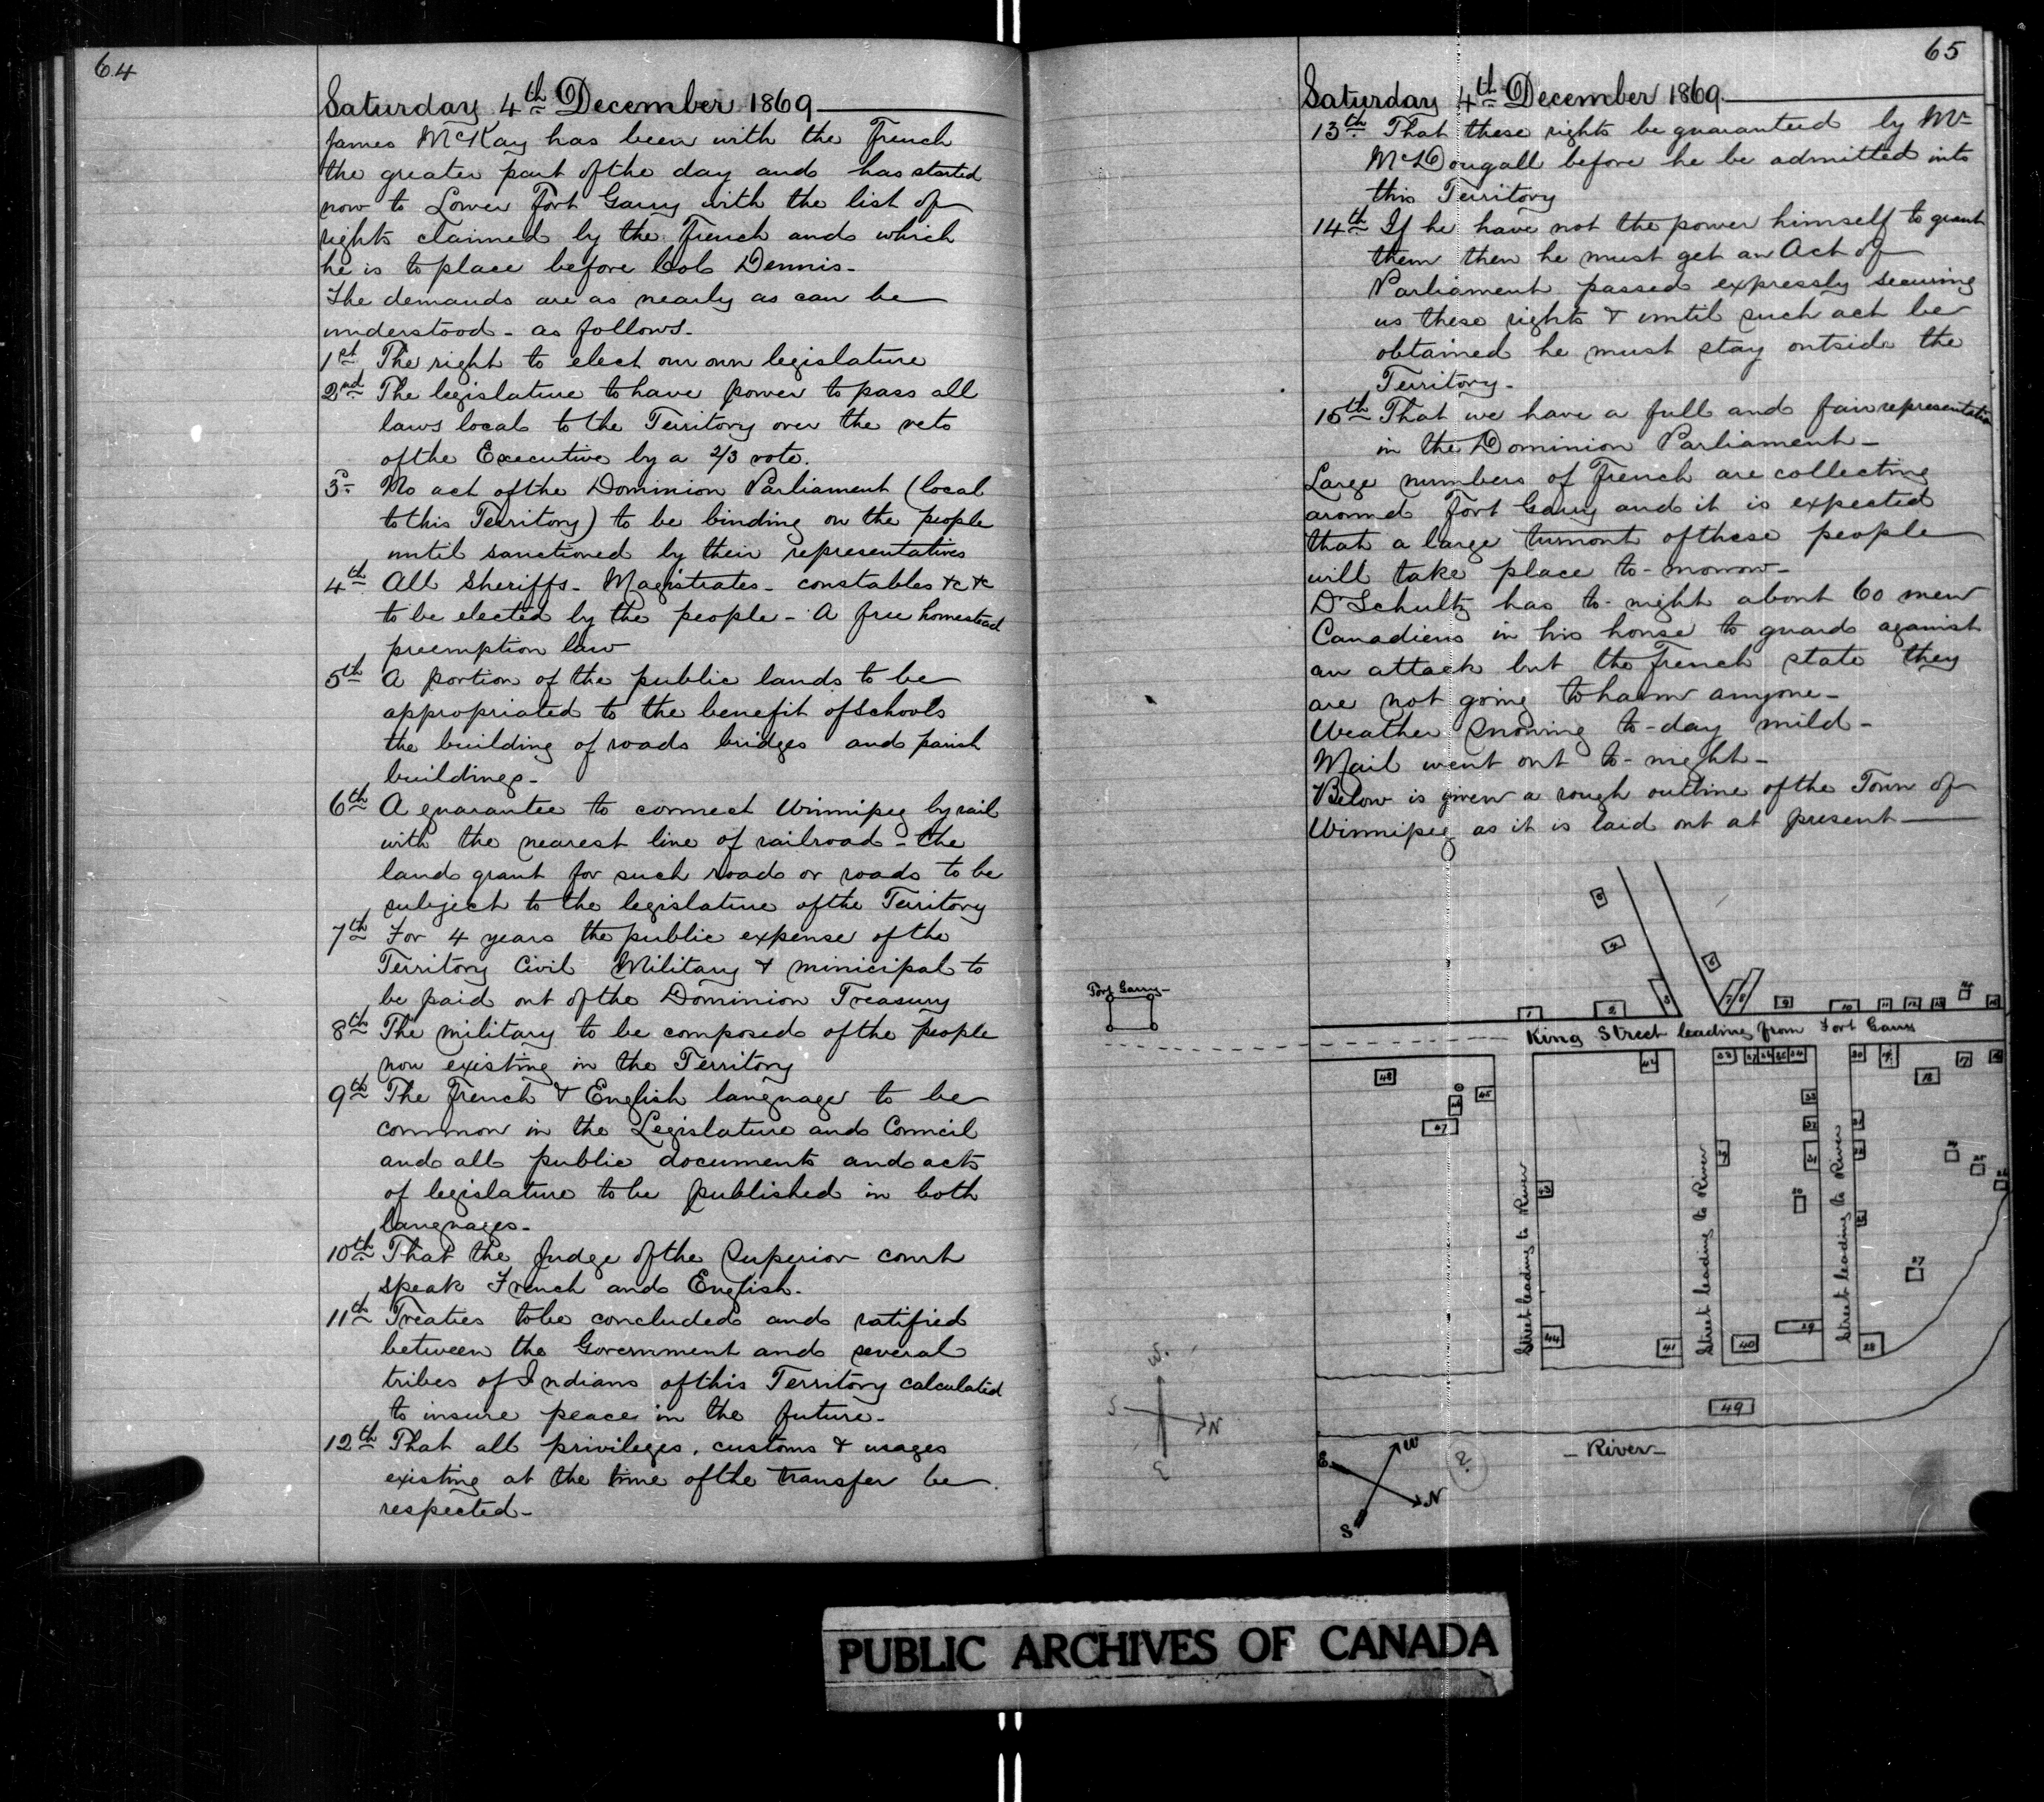 64
Saturday 4th December 1869
James McKay has been with the French
the greater part of the day and has started
now to Lower Fort Garry with the list of
rights claimed by the French and which
he is to place before Col Dennis-
The demands are as nearly as can be
understood- as follows-
1st The right to elect our own legislature
2nd The legislature to have power to pass all
laws local to the Territory over the veto
of the Executive by a 2/3 vote.
3d No act of the Dominion Parliament (local
to this Territory) to be binding on the people
until sanctioned by their representatives
4th All Sheriffs- Magistrates- constables &c &c
to be elected by the people- A free homestead
preemption law
5th A portion of the public lands to be
appropriated to the benefit of Schools
the building of roads bridges and parish
buildings-
6th A guarantee to connect Winnipeg by rail
with the nearest line of railroad- the
land grant for such road or roads to be
subject to the legislature of the Territory
7th For 4 years the public expense of the
Territory Civil Military & minicipal to
be paid out of the Dominion Treasury
8th The military to be composed of the people
now existing in the Territory
9th The French & English language to be
common in the Legislature and Council
and all public documents and acts
of legislature to be published in both
languages-
10th That the Judge of the Superior court
speak French and English.
11th Treaties to be concluded and ratified
between the Government and several
tribes of Indians of this Territory calculated
to insure peace in the future-
12th That all privileges, customs & usages
existing at the time of the transfer be
respected-
65
Saturday 4th December 1869
13th That these rights be guaranteed by Mr
McDougall before he be admitted into
this Territory
14th If he have not the power himself to grant
them then he must get an Act of
Parliament passed expressly securing
us these rights & until such act be
obtained he must stay outside the
Territory-
15th That we have a full and fair representation
in the Dominion Parliament-
Large numbers of French are collecting
around Fort Garry and it is expected
that a large turnout of these people
will take place to-morrow-
Dr Schultz has to-night about 60 men
Canadiens in his house to guard against
an attack but the French state they
are not going to harm anyone-
Weather Snowing to-day mild-
Mail went out to-night-
Below is given a rough outline of the Town of
Winnipeg as it is laid out at present
5
4
6
3
7
8
Fort Garry-
1
2
9
10
11
12
13
14
15
King Street leading from Fort Garry
48
45
46
47
42
38
37
36
35
34
20
19
18
17
16
33
32
31
30
39
43
27
Street leading to River
Street leading to River
Street leading to River
44
41
40
29
28
49
-River-
W.
S
N
E
E
W
N
S
?
PUBLIC ARCHIVES OF CANADA